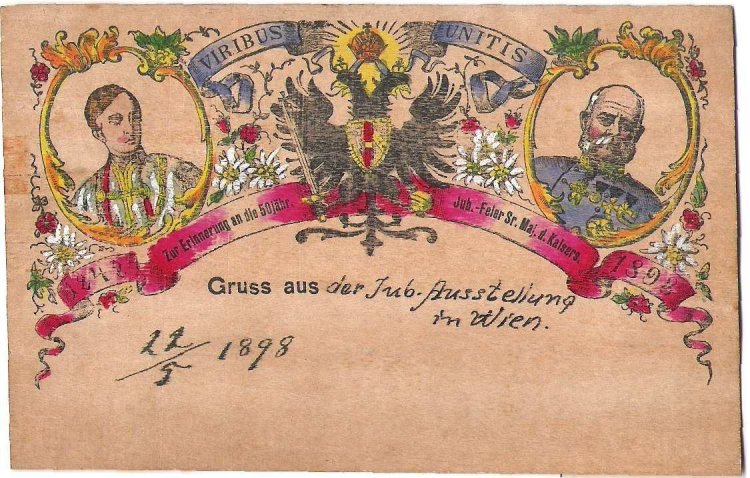 VIRIBUS UNITIS
Zur Erinnerung an die 50jähr. Jub.-Feier Sr. Maj. d. Kaisers.
1898
Gruss aus der Jub. Ausstellung
in Wien.
22/5 1898